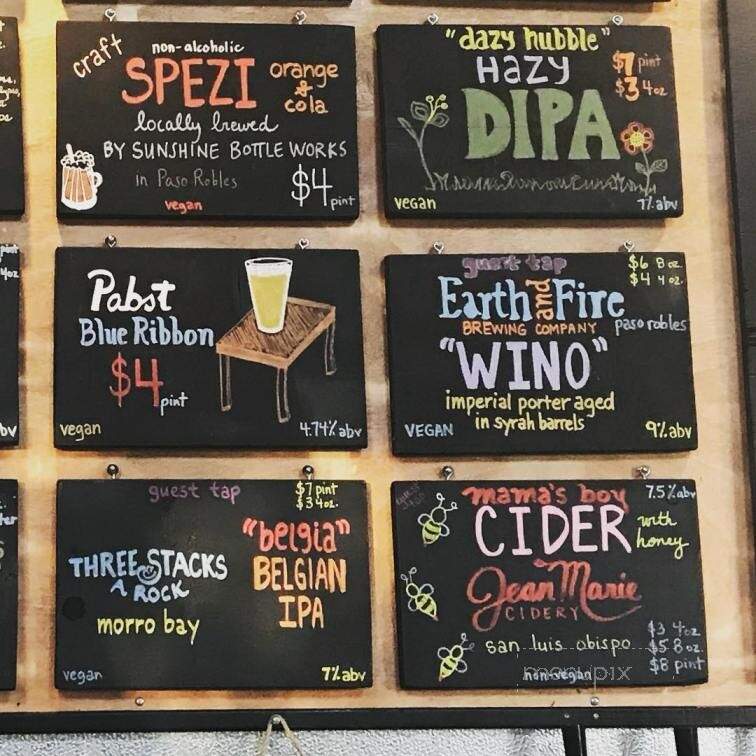 craft
non-alcoholic
SPEZI
orange
&
cola
locally brewed
BY SUNSHINE BOTTLE WORKS
in Paso Robles
$4 pint
vegan
"dazy hubble"
HAZY
DIPA
$7 pint
$3 4oz
VEGAN
7% abv
Pabst
Blue Ribbon
$4
pint
vegan
4.74% abv
guest tap
$6 8 oz.
$4 4 oz.
Earth and Fire
BREWING COMPANY
paso robles
"WINO"
imperial porter aged
in syrah barrels
VEGAN
9% abv
guest tap
$7 pint
$3 4oz.
THREE STACKS
& A ROCK
morro bay
"belgia"
BELGIAN
IPA
vegan
7% abv
guest tap
mama's boy
7.5% abv
CIDER
with
honey
Jean Marie
CIDERY
san luis obispo
$3 4oz
$5 8oz
$8 pint
non-vegan
menupix